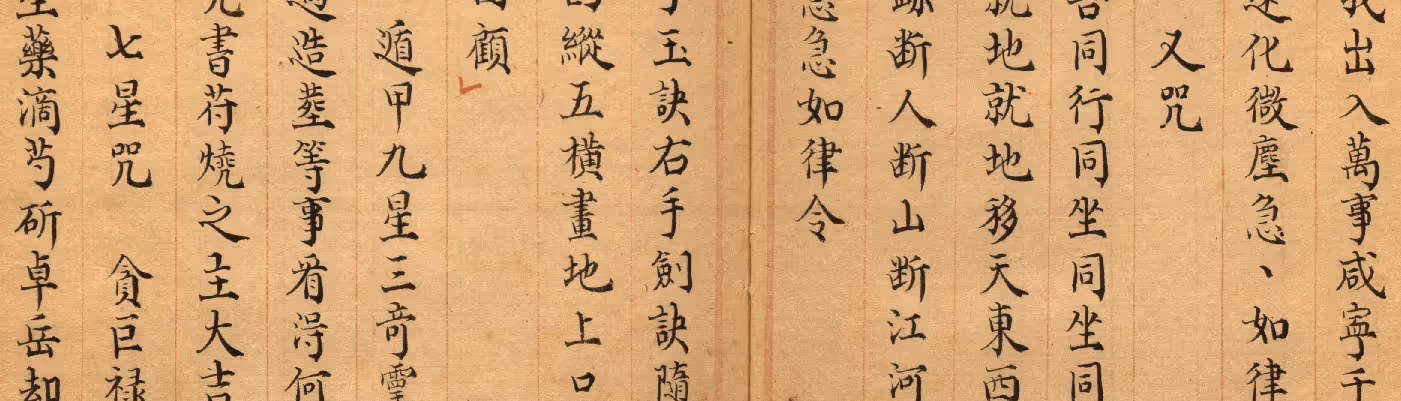 出入萬事咸寧千
化微塵急、如律
又咒
同行同坐同坐同
就地就地移天東西
跡断人断山断江河
急急如律令
玉訣右手劍訣隨
縱五橫畫地上口
顧
遁甲九星三奇靈
造塟等事看得何
書苻燒之土大吉
七星咒 貪巨祿
藥滴芍斫卓岳却